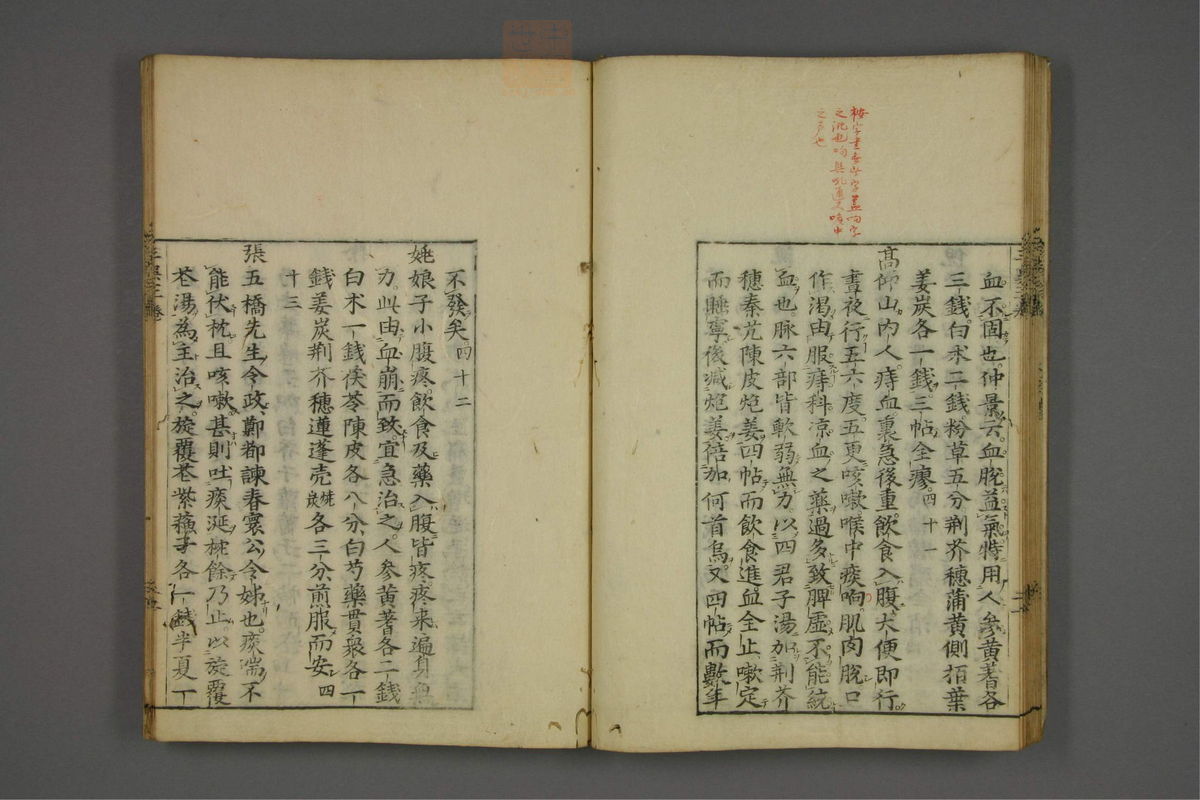 血不固也仲景云血脫益氣特用人參黃蓍各
三錢白朮二錢粉草五分荆芥穗蒲黃側栢葉
姜炭各一錢三帖全瘳四十一
高仰山內人痔血裏急後重飲食入腹大便即行
晝夜行五六度五更咳嗽喉中痰响肌肉脫口
作渴由服痔科凉血之藥過多致脾虛不能統
血也脉六部皆軟弱無力以四君子湯加荆芥
穗秦艽陳皮炮姜四帖而飲食進血全止嗽定
而睡寧後减炮姜倍加何首烏又四帖而數年
不發矣四十二
娘子小腹疼飲食及藥入腹皆疼疼来遍身無
力此由血崩而致宜急治之人參黃蓍各二錢
白朮一錢茯苓陳皮各八分白芍藥貫衆各一
錢姜炭荆芥穗蓮蓬壳燒炭各三分煎服而安四
十三
張五橋先生令政鄭都諫春寰公令姊也痰喘不
能伏枕且咳嗽甚則吐痰涎椀餘乃止以旋覆
花湯為主治之旋覆花紫蘓子各一錢半夏一